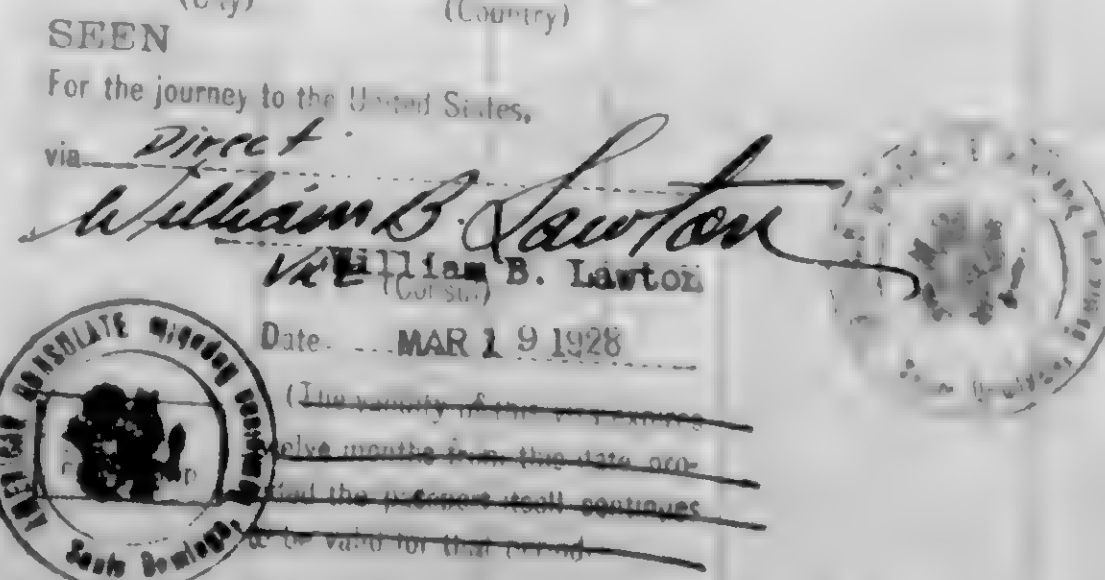 (City) (Country)
SEEN
For the journey to the United States,
via Direct
William B. Lawton
Vice William B. Lawton
(Consul)
Date MAR 19 1928
(The validity of this visa expires
twelve months from this date pro-
vided the passport itself continues
to be valid for that period).
AMERICAN CONSULATE
Santo Domingo,